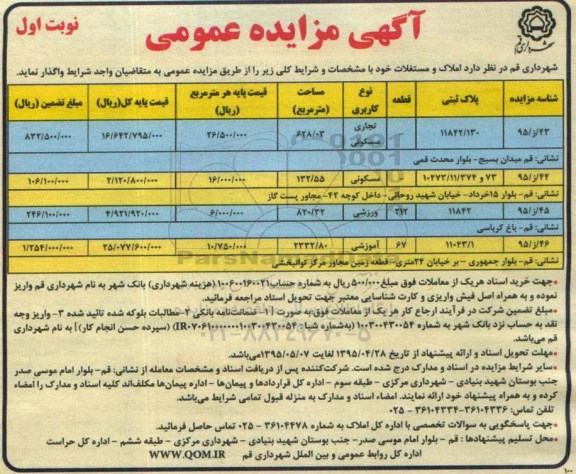 آگهی مزایده عمومی
نوبت اول
شهرداری قم
شهرداری قم در نظر دارد املاک و مستغلات خود با مشخصات و شرایط کلی زیر را از طریق مزایده عمومی به متقاضیان واجد شرایط واگذار نماید.
شناسه مزایده پلاک ثبتی قطعه نوع کاربری مساحت (مترمربع) قیمت پایه هر مترمربع (ریال) قیمت پایه کل(ریال) مبلغ تضمین (ریال)
۹۵/ز/۴۳ ۱۱۸۴۲/۱۳۰ تجاری مسکونی ۶۲۸/۰۳ ۲۶/۵۰۰/۰۰۰ ۱۶/۶۴۲/۷۹۵/۰۰۰ ۸۳۲/۵۰۰/۰۰۰
نشانی: قم میدان بسیج- بلوار محدث قمی
۹۵/ز/۴۴ ۷۳ و ۱۰۴۷۳/۱۱/۳۷۴ مسکونی ۱۳۲/۵۵ ۱۶/۰۰۰/۰۰۰ ۲/۱۲۰/۸۰۰/۰۰۰ ۱۰۶/۱۰۰/۰۰۰
نشانی: قم- بلوار ۱۵خرداد- خیابان شهید روحانی- داخل کوچه ۴۲- مجاور پست گاز
۹۵/ز/۴۵ ۱۱۸۴۲ ۲۱۲ ورزشی ۸۲۰/۳۲ ۶/۰۰۰/۰۰۰ ۴/۹۲۱/۹۲۰/۰۰۰ ۲۴۶/۱۰۰/۰۰۰
نشانی: قم- باغ کرباسی
۹۵/ز/۴۶ ۱۱۰۴۳/۱ ۶۷ آموزشی ۲۳۳۲/۸۰ ۱۰/۷۵۰/۰۰۰ ۲۵/۰۷۷/۶۰۰/۰۰۰ ۱/۲۵۴/۰۰۰/۰۰۰
نشانی: قم- بلوار جمهوری – بر خیابان ۲۴متری- قطعه زمین مجاور مرکز توانبخشی
•جهت خرید اسناد هریک از معاملات فوق مبلغ ۵۰۰/۰۰۰ریال به شماره حساب۱۰۰۶۰۰۱۶۰۰۲۱ (هزینه شهرداری) بانک شهر به نام شهرداری قم واریز
نموده و به همراه اصل فیش واریزی و کارت شناسایی معتبر جهت تحویل اسناد مراجعه فرمائید.
•مبلغ تضمین شرکت در فرآیند ارجاع کار هریک از معاملات فوق به صورت [۱- ضمانتنامه بانکی ۲- مطالبات بلوکه شده تائید شده ۳- واریز وجه
نقد به حساب نزد بانک شهر به شماره ۱۰۰۳۰۰۴۳۰۰۵۴ (به‌شماره شبا: IR۰۷۰۶۱۰۰۰۰۰۰۰۱۰۰۳۰۰۴۳۰۰۵۴) (سپرده حسن انجام کار)] به نام شهرداری
قم می‌باشد.
•مهلت تحویل اسناد و ارائه پیشنهاد از تاریخ ۱۳۹۵/۰۴/۲۸ لغایت ۱۳۹۵/۰۵/۰۷می‌باشد.
•سایر شرایط مزایده در اسناد و مدارک درج شده است. شرکت‌کننده پس از دریافت اسناد و مشخصات معامله از نشانی: قم- بلوار امام موسی صدر
جنب بوستان شهید بنیادی - شهرداری مرکزی - طبقه سوم - اداره کل قراردادها و پیمان‌ها - اداره پیمان‌ها مکلف‌اند کلیه اسناد و مدارک را امضاء
کرده و به همراه پیشنهاد خود ارائه نمایند. امضاء اسناد و مدارک به منزله قبول تمامی شرایط می‌باشد.
تلفن تماس: ۳۶۱۰۴۳۳۶-۳۶۱۰۴۳۳۴ - ۰۲۵
•جهت پاسخگویی به سوالات تخصصی با اداره کل املاک به شماره ۳۶۱۰۴۴۷۸ - ۰۲۵ تماس حاصل فرمائید.
•محل تسلیم پیشنهادها : قم - بلوار امام موسی صدر- جنب بوستان شهید بنیادی - شهرداری مرکزی - طبقه ششم - اداره کل حراست
اداره کل روابط عمومی و بین الملل شهرداری قم WWW.QOM.IR
ParsNamadData
۰۲۱-۸۸۳۴۹۶۷۰-۵